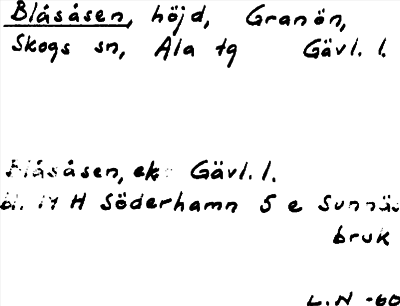 Blåsåsen, höjd, Granön,
Skogs sn, Ala tg Gävl. l.
Blåsåsen, ek. Gävl. l.
Bl. 14 H Söderhamn 5 e Sunnäs
bruk
L.N -60